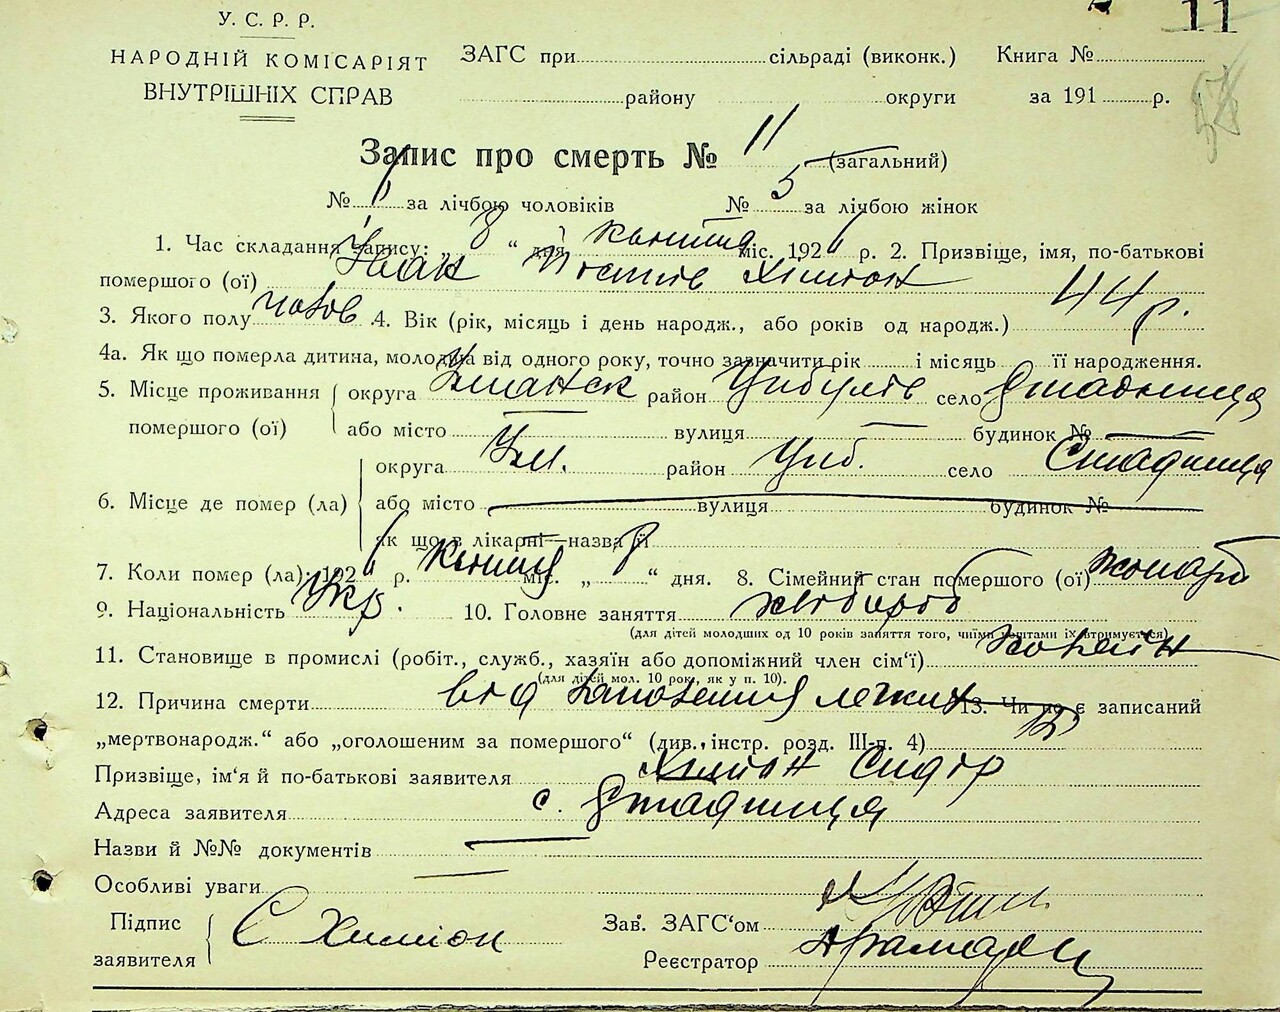 У. С. Р. Р.
11
НАРОДНІЙ КОМІСАРІЯТ
ВНУТРІШНІХ СПРАВ
ЗАГС при сільраді (виконк.) Книга №
району округи за 191 р.
Запис про смерть № 11 (загальний)
№ за лічбою чоловіків № 5 за лічбою жінок
1. Час складання запису: „ 8 “ дня міс. 192 р. 2. Призвіще, імя, по-батькові
помершого (ої) Хитон 44 р.
3. Якого полу чолов 4. Вік (рік, місяць і день народж., або років од народж.)
4а. Як що померла дитина, молодша від одного року, точно зазначити рік і місяць її народження.
5. Місце проживання помершого (ої) округа Уманск район Цибулів село Стадниця
або місто вулиця будинок №
6. Місце де помер (ла) округа Ум. район Циб. село Стадниця
або місто вулиця будинок №
як що в лікарні—назва її
7. Коли помер (ла): 192 р. міс. „ 8 “ дня. 8. Сімейний стан помершого (ої) жонат
9. Національність Укр. 10. Головне заняття хлібороб
(для дітей молодших од 10 років заняття того, чиїми коштами їх утримується)
11. Становище в промислі (робіт., служб., хазяїн або допоміжний член сім‘ї)
(для дітей мол. 10 років, як у п. 10).
12. Причина смерти від запалення легких 13. Чи не є записаний
„мертвонародж.“ або „оголошеним за помершого“ (див. інстр. розд. III-п. 4)
Призвіще, ім‘я й по-батькові заявителя Хитон Сидор
Адреса заявителя с. Стадниця
Назви й №№ документів
Особливі уваги
Підпис заявителя С Хитон
Зав. ЗАГС‘ом
Реєстратор